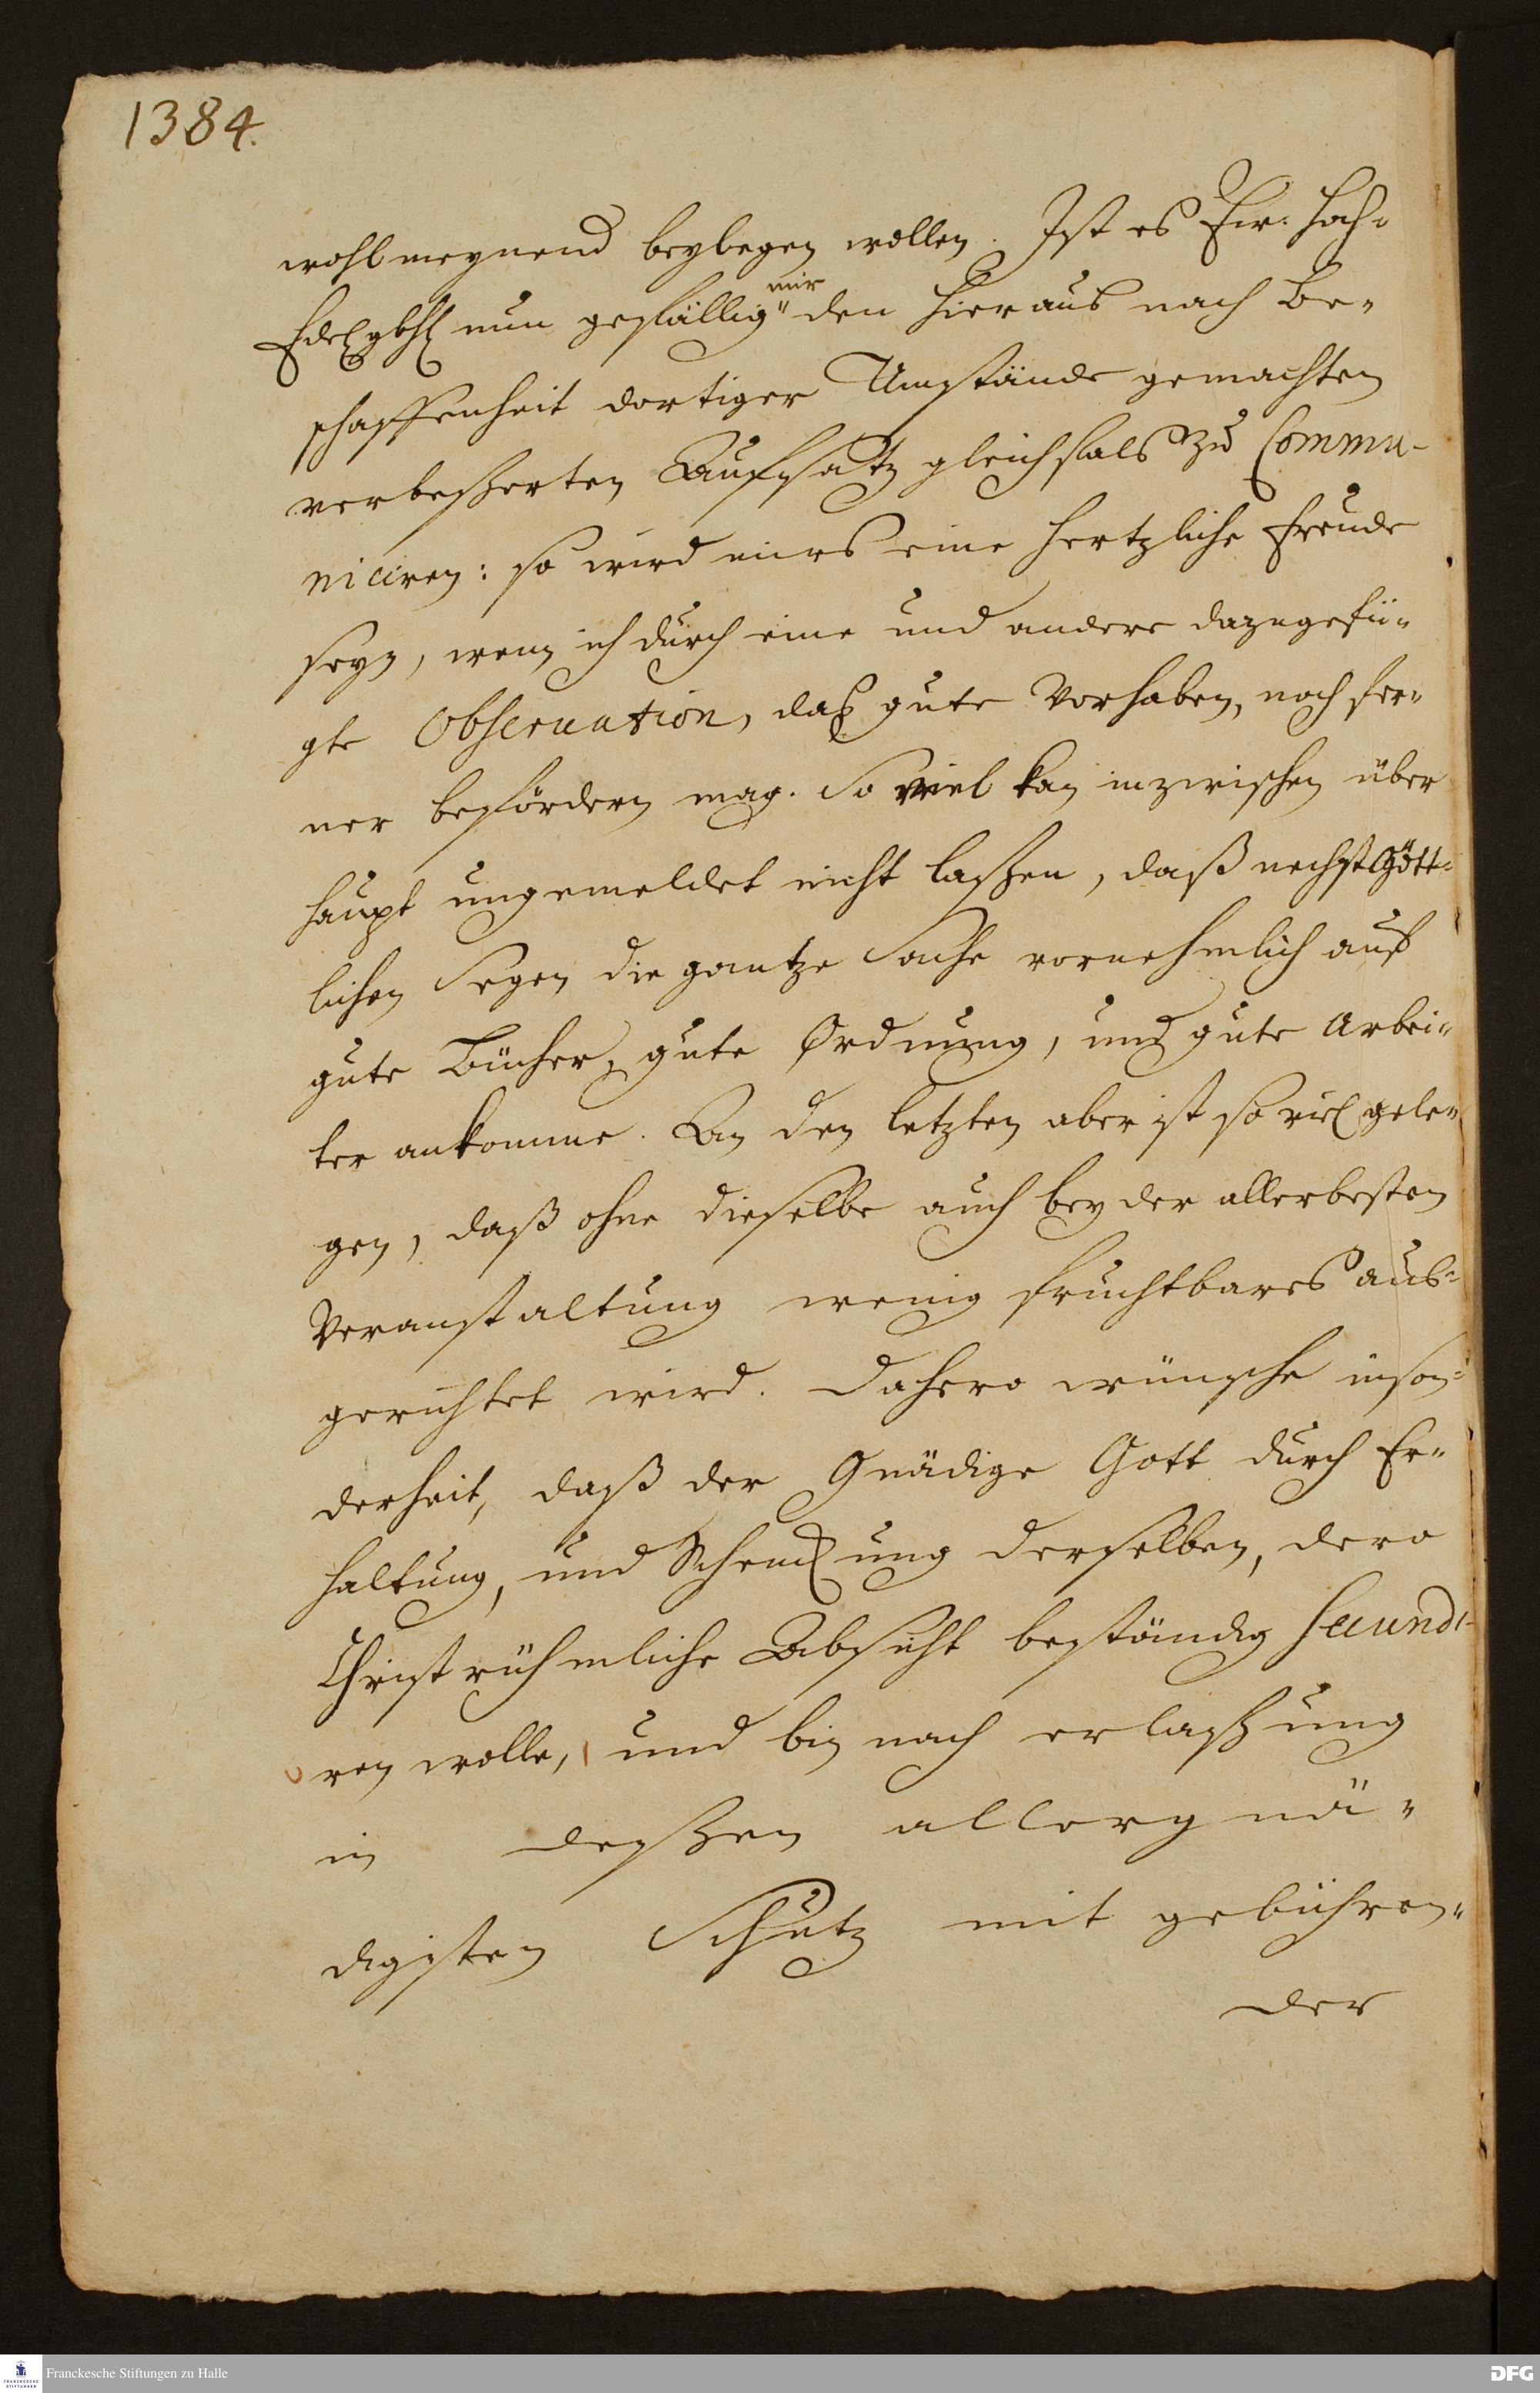 1384.
wohlmeynend beylegen wollen. Ist es Ew. Hoch-
Edelgbh nun gefällig mir den hieraus nach Be-
schaffenheit dortiger Umstände gemachten
verbeßerten Auffsatz gleichfals zu Commu-
niciren: so wird mirs eine hertzliche Freude
seyn, wenn ich durch eine und andere dazugefü-
gte Observation, daß gute Vorhaben, noch fer-
ner befördern mag. So viel kan inzwischen über
haupt ungemeldet nicht laßen, daß nechst Gött-
lichen Segen die gantze Sache vornehmlich auf
gute Bücher, gute Ordnung, und gute Arbei-
ter ankomme. An den letzten aber ist so viel gele-
gen, daß ohne dieselbe auch bey der allerbesten
Veranstaltung wenig fruchtbares aus-
gerichtet wird. Dahero wünsche inson-
derheit, daß der Gnädige Gott durch Er-
haltung, und Schenckung derselben, dero
Christrühmliche Absicht beständig secundi-
ren wolle, und bin nach erlaßung
in deßen allergnä-
digsten Schutz mit gebühren-
der
Franckesche Stiftungen zu Halle
FRANCKESCHE STIFTUNGEN
DFG